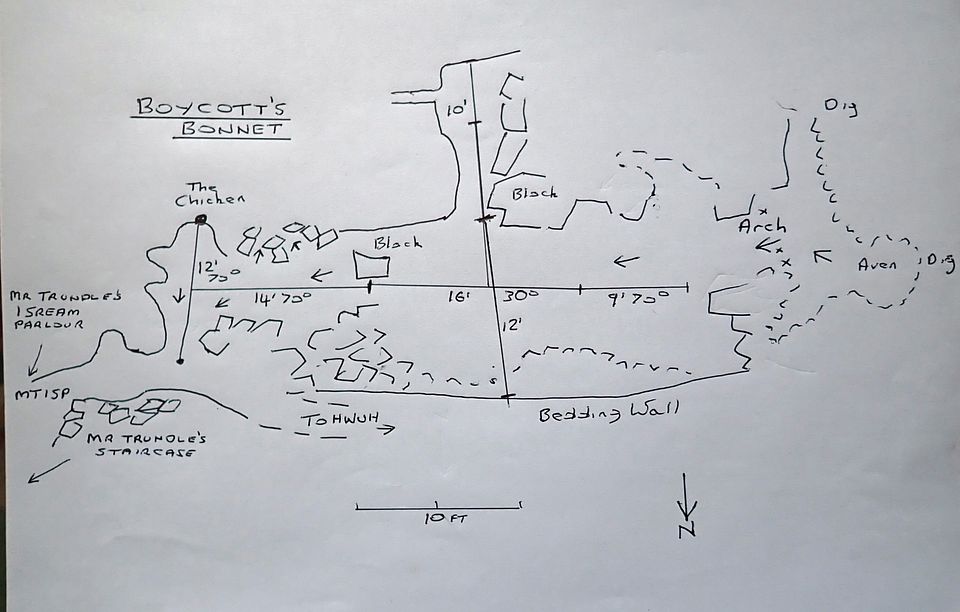 BOYCOTT'S
BONNET
The
Chicken
10'
Block
Block
Dig
Arch
Aven
Dig
12'
70°
14' 70°
16'
30°
9' 70°
12'
MR TRUNDLE'S
ISREAM
PARLOUR
MTISP
MR TRUNDLE'S
STAIRCASE
TO HWUH
Bedding Wall
10 FT
N